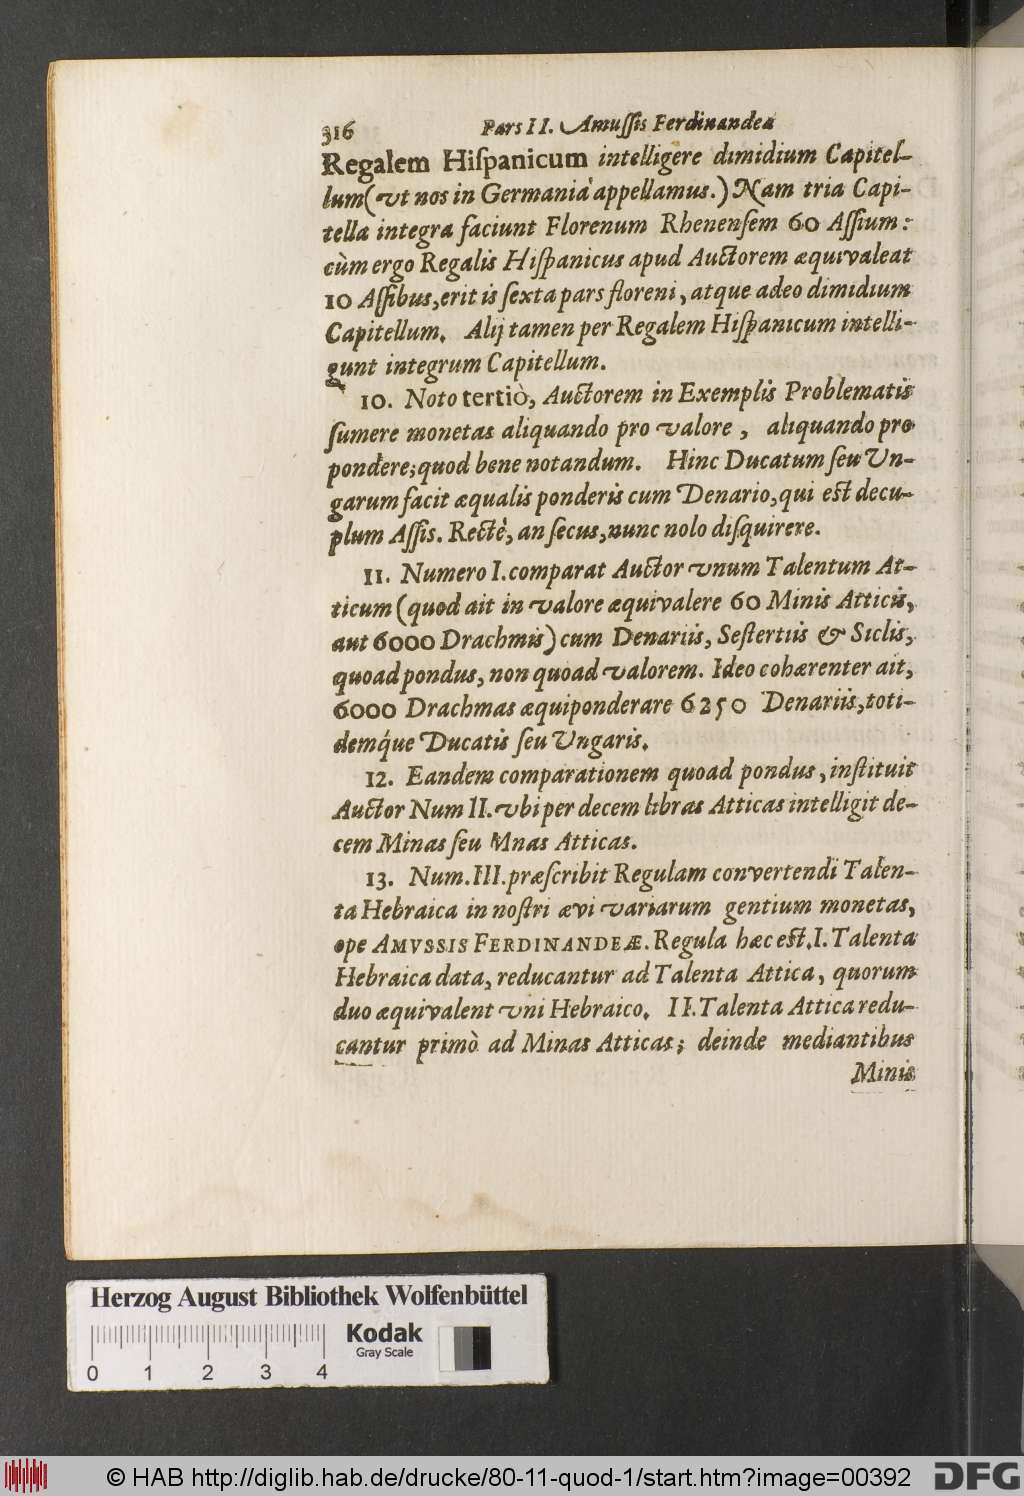 316 Pars II. Amuſſis Ferdinandea
Regalem Hiſpanicum intelligere dimidium Capitel-
lum (vt nos in Germaniâ appellamus.) Nam tria Capi-
tella integra faciunt Florenum Rhenenſem 60 Aſſium:
cùm ergo Regalis Hiſpanicus apud Auctorem æquivaleat
10 Aſſibus, erit is ſexta pars floreni, atque adeo dimidium
Capitellum. Alij tamen per Regalem Hiſpanicum intelli-
gunt integrum Capitellum.
10. Noto tertiò, Auctorem in Exemplis Problematis
ſumere monetas aliquando pro valore, aliquando pro
pondere; quod bene notandum. Hinc Ducatum ſeu Vn-
garum facit æqualis ponderis cum Denario, qui est decu-
plum Aſſis. Rectè, an ſecus, nunc nolo diſquirere.
11. Numero I. comparat Auctor vnum Talentum At-
ticum (quod ait in valore æquivalere 60 Minis Atticis,
aut 6000 Drachmis) cum Denariis, Seſtertiis & Siclis,
quoad pondus, non quoad valorem. Ideo cohærenter ait,
6000 Drachmas æquiponderare 6250 Denariis, toti-
demq́ue Ducatis ſeu Vngaris.
12. Eandem comparationem quoad pondus, inſtituit
Auctor Num II. vbi per decem libras Atticas intelligit de-
cem Minas ſeu Mnas Atticas.
13. Num. III. præſcribit Regulam convertendi Talen-
ta Hebraica in noſtri ævi variarum gentium monetas,
ope AMVSSIS FERDINANDEÆ. Regula hæc est. I. Talenta
Hebraica data, reducantur ad Talenta Attica, quorum
duo æquivalent vni Hebraico. II. Talenta Attica redu-
cantur primò ad Minas Atticas; deinde mediantibus
Minis
Herzog August Bibliothek Wolfenbüttel
Kodak
Gray Scale
0 1 2 3 4
© HAB http://diglib.hab.de/drucke/80-11-quod-1/start.htm?image=00392
DFG